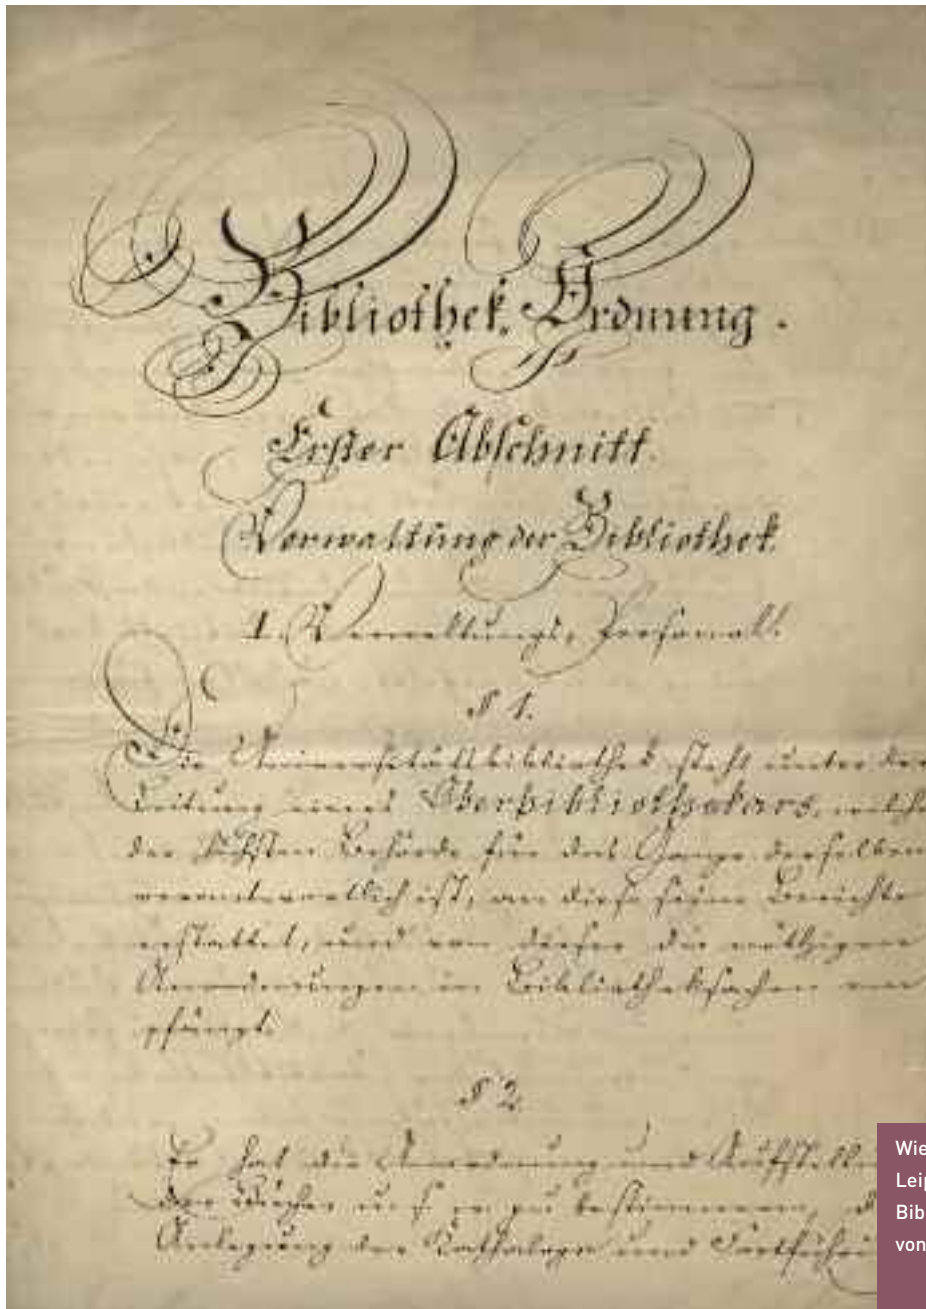 Bibliothek-Ordnung.
Erster Abschnitt.
Verwaltung der Bibliothek.
I. Verwaltungs-Personal.
§ 1.
Die Universitätsbibliothek steht unter der
Leitung eines Oberbibliothekars, welcher
der höchsten Behörde für das Ganze derselben
verantwortlich ist, an diese seine Berichte
erstattet, und von dieser die nöthigen
Anordnungen in Bibliotheksachen em
pfängt.
§ 2.
Er hat die Anordnung und Aufstellu
der Bücher zu bestimmen, d
Anlegung der Kataloge und Fortführu
Wie
Leip
Bib
von